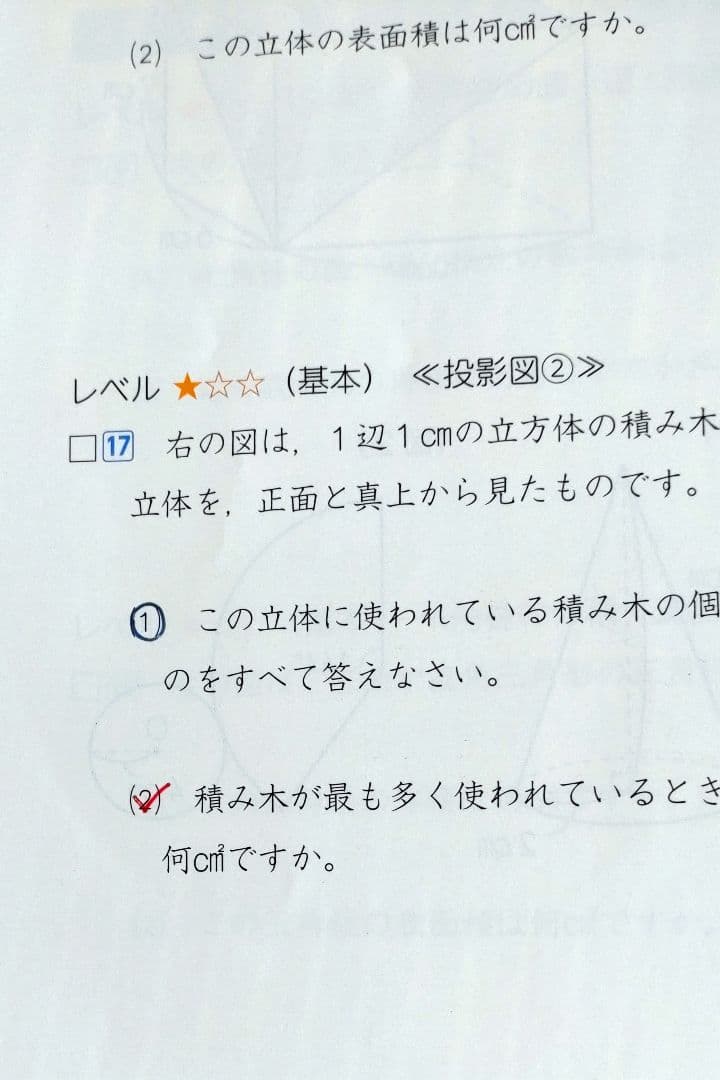 (2) この立体の表面積は何c㎡ですか。
レベル ★☆☆ (基本) ≪投影図②≫
□17 右の図は，1辺1cmの立方体の積み木
立体を，正面と真上から見たものです。
(1) この立体に使われている積み木の個
のをすべて答えなさい。
(2) 積み木が最も多く使われているとき
何c㎡ですか。